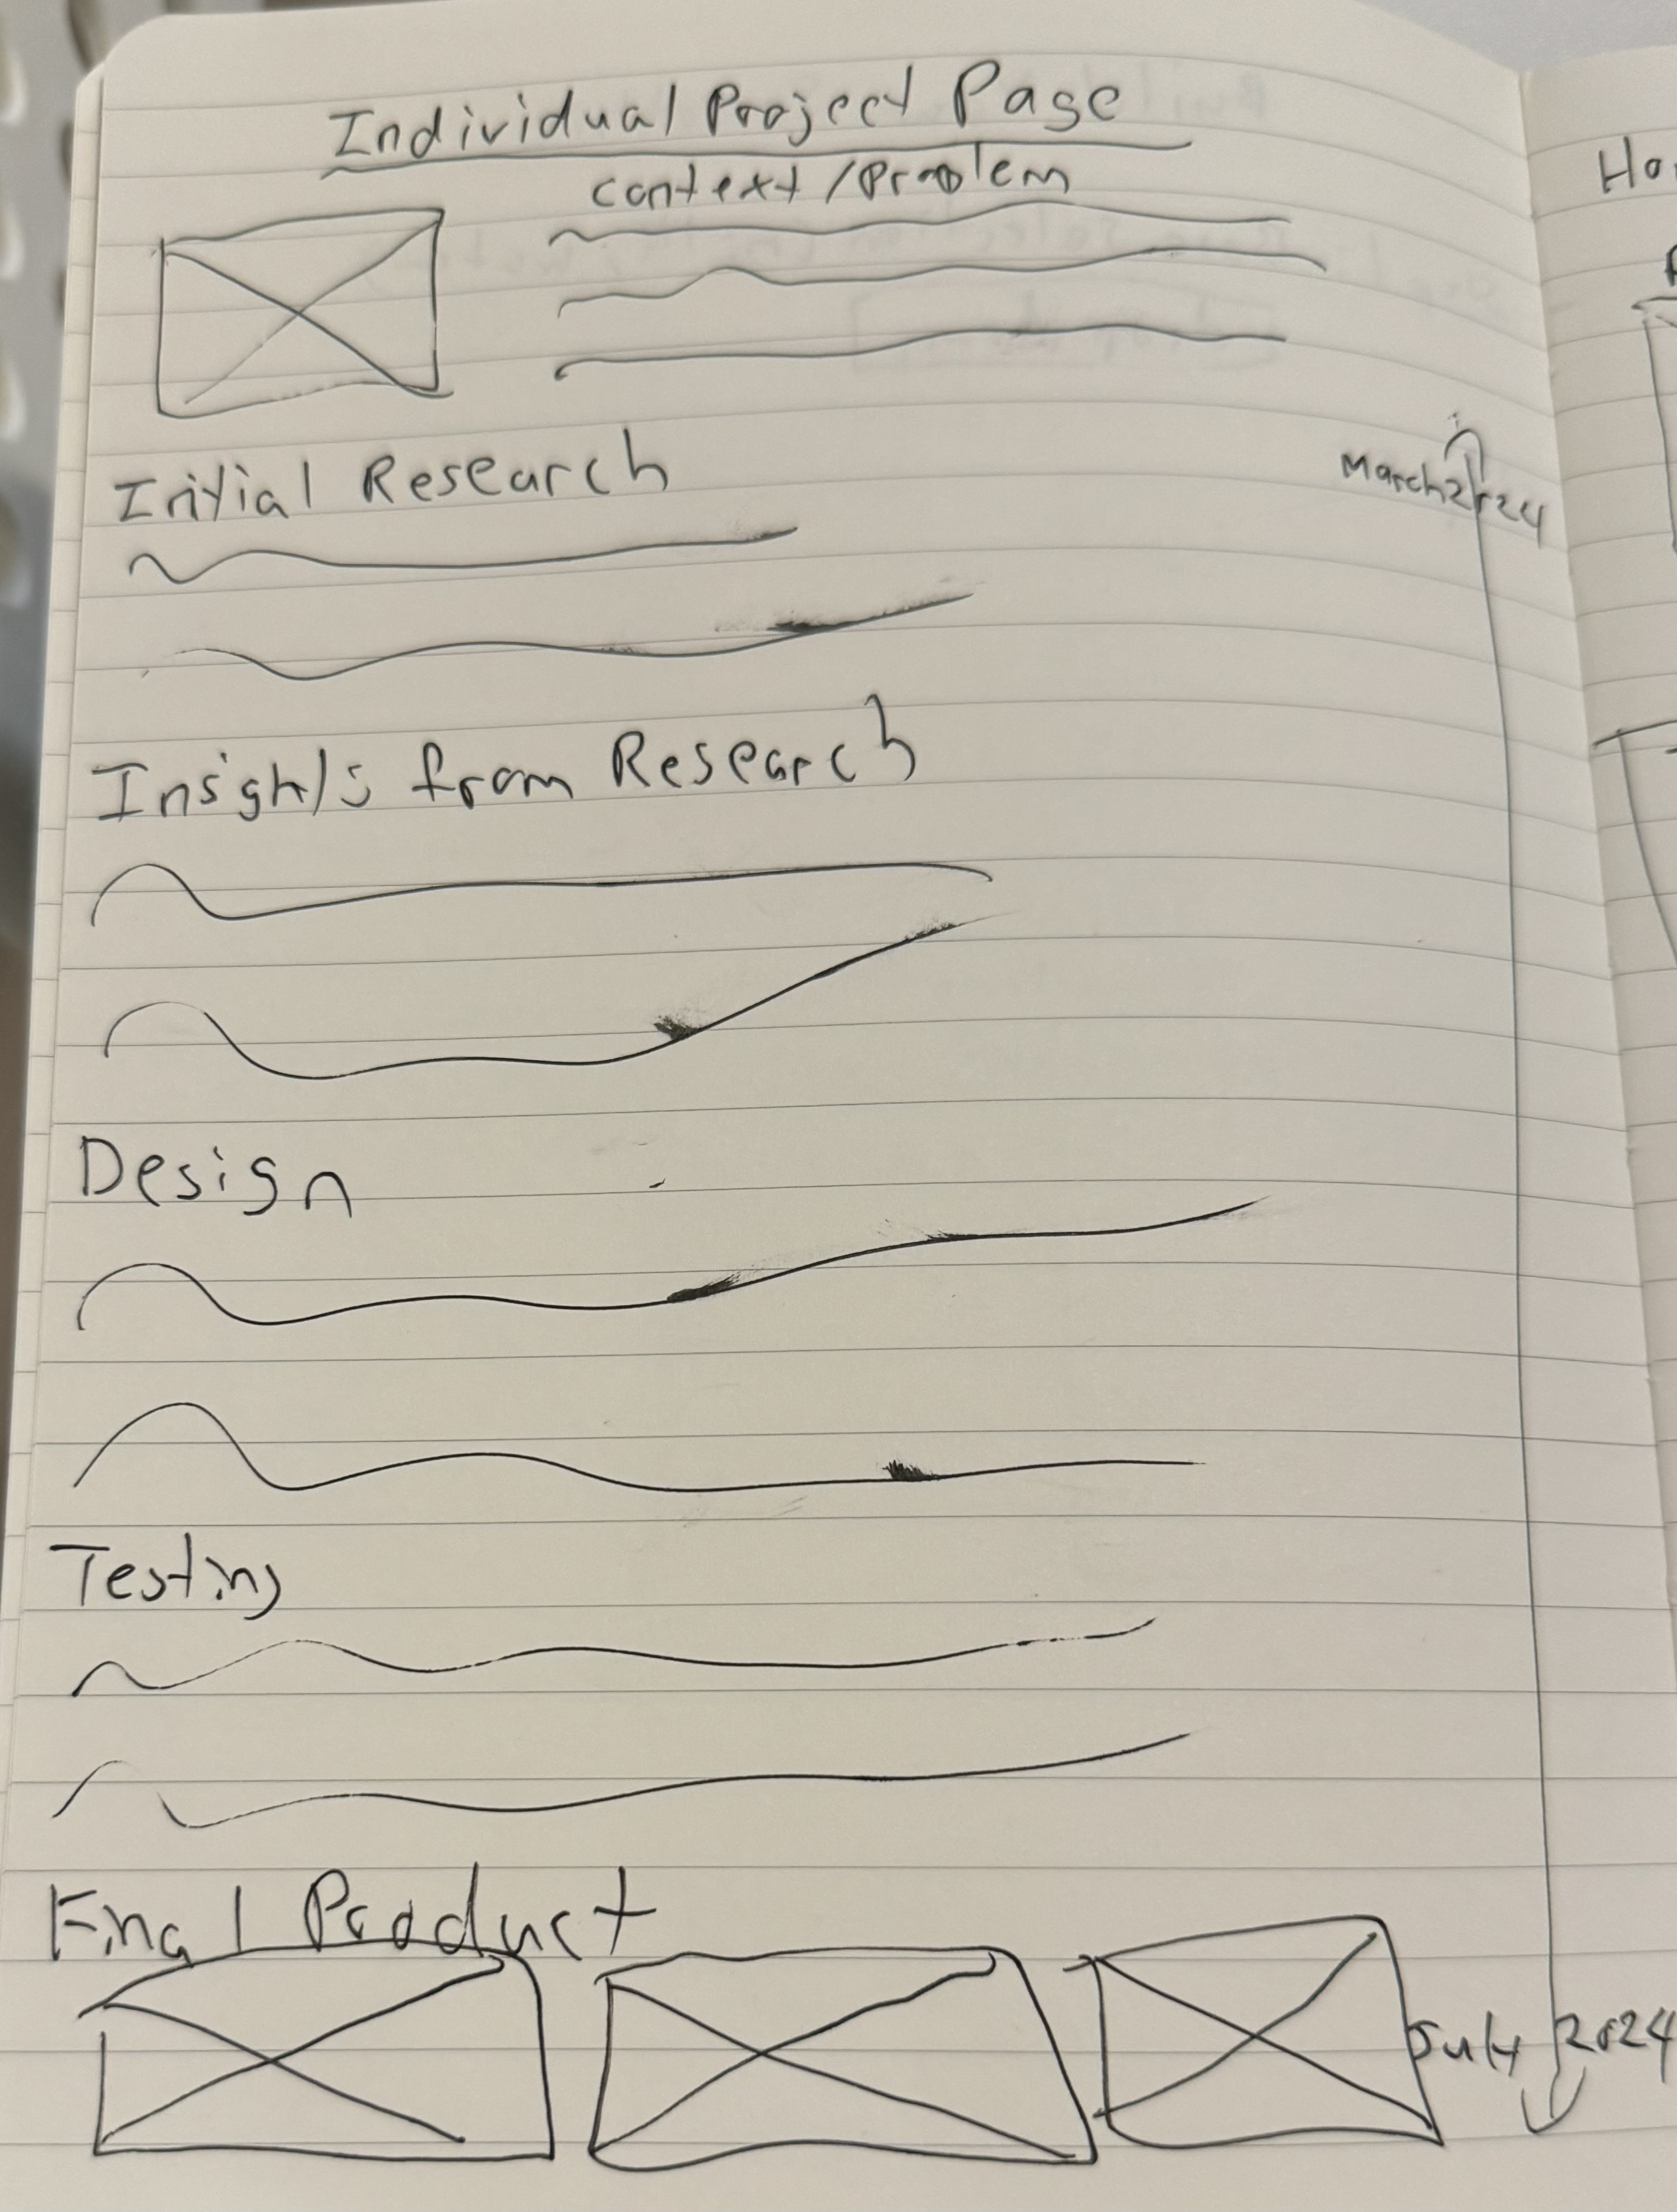 Individual Project Page
Context/Problem
Initial Research
March 2024
Insights from Research
Design
Testing
Final Product
July 2024
Ho